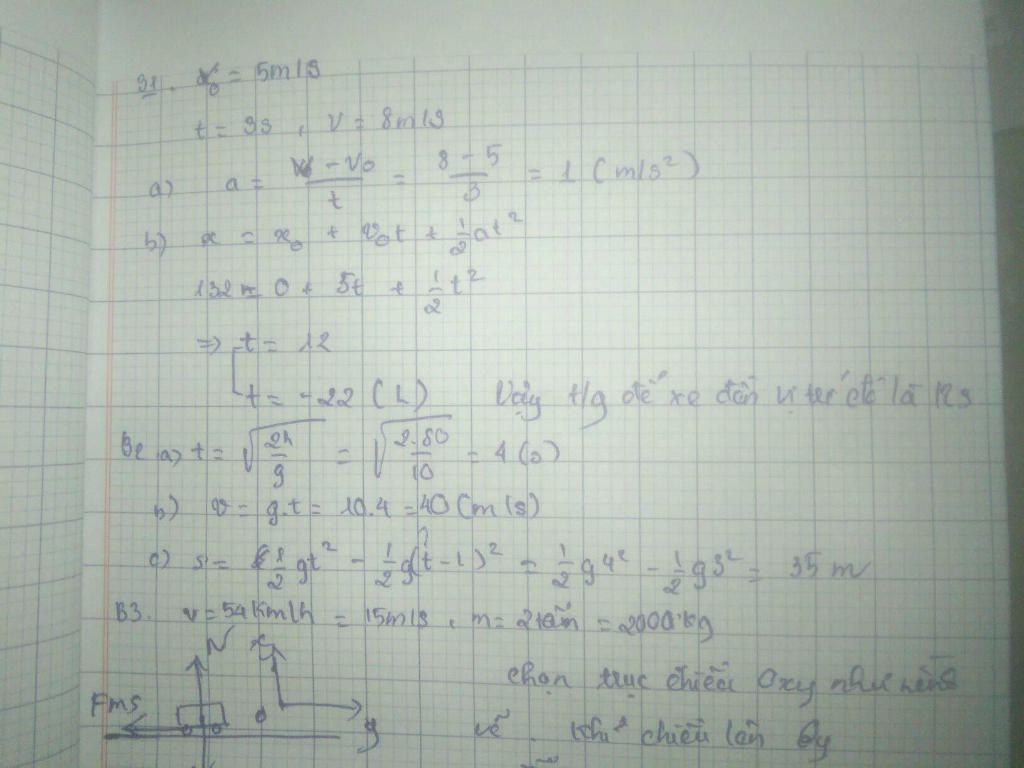 B1. v₀ = 5m/s
t = 3s , v = 8m/s
a) a = (v - v₀)/t = (8 - 5)/3 = 1 (m/s²)
b) x = x₀ + v₀t + 1/2 at²
132 = 0 + 5t + 1/2 t²
=> t = 12
t = -22 (L) Vậy t/g để xe đến vị trí đó là 12s
B2 a) t = √(2h/g) = √(2.80/10) = 4 (s)
b) v = g.t = 10.4 = 40 (m/s)
c) s = 1/2 gt² - 1/2 g(t - 1)² = 1/2 g4² - 1/2 g3² = 35 m
B3. v = 54km/h = 15m/s , m = 2 tấn = 2000kg
N x
chọn trục chiếu Oxy như hình
Fms O y
vẽ . chiếu lên Oy